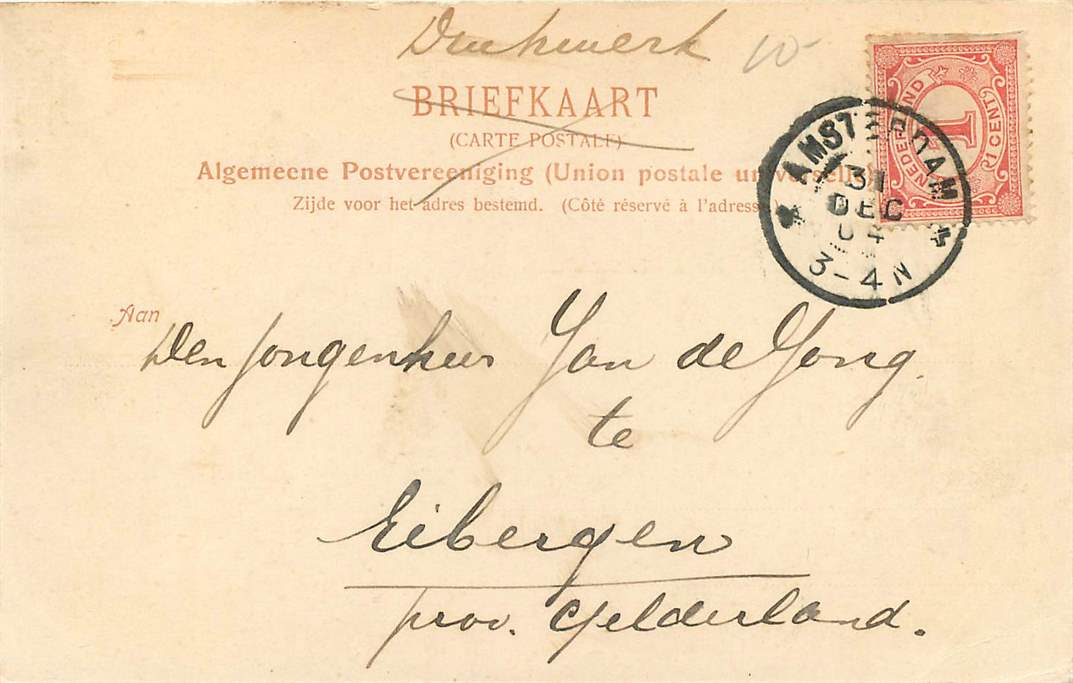 Drukwerk
10-
BRIEFKAART
(CARTE POSTALE)
Algemeene Postvereeniging (Union postale universelle)
Zijde voor het adres bestemd. (Côté réservé à l'adresse
NEDERLAND
1
1 CENT
AMSTERDAM
31
DEC
04
3-4 N
Aan
Den Jongenheer Jan de Jong.
te
Eibergen
prov. Gelderland.